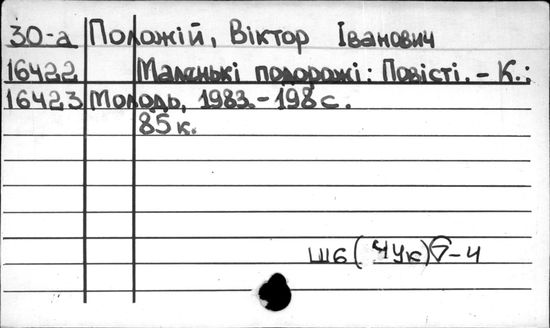 30-а Положій, Віктор Іванович
16422 Маленькі подорожі: Повісті. - К.:
16423 Молодь, 1983. - 198 с.
85 к.
Шб (4Ук) 6-4